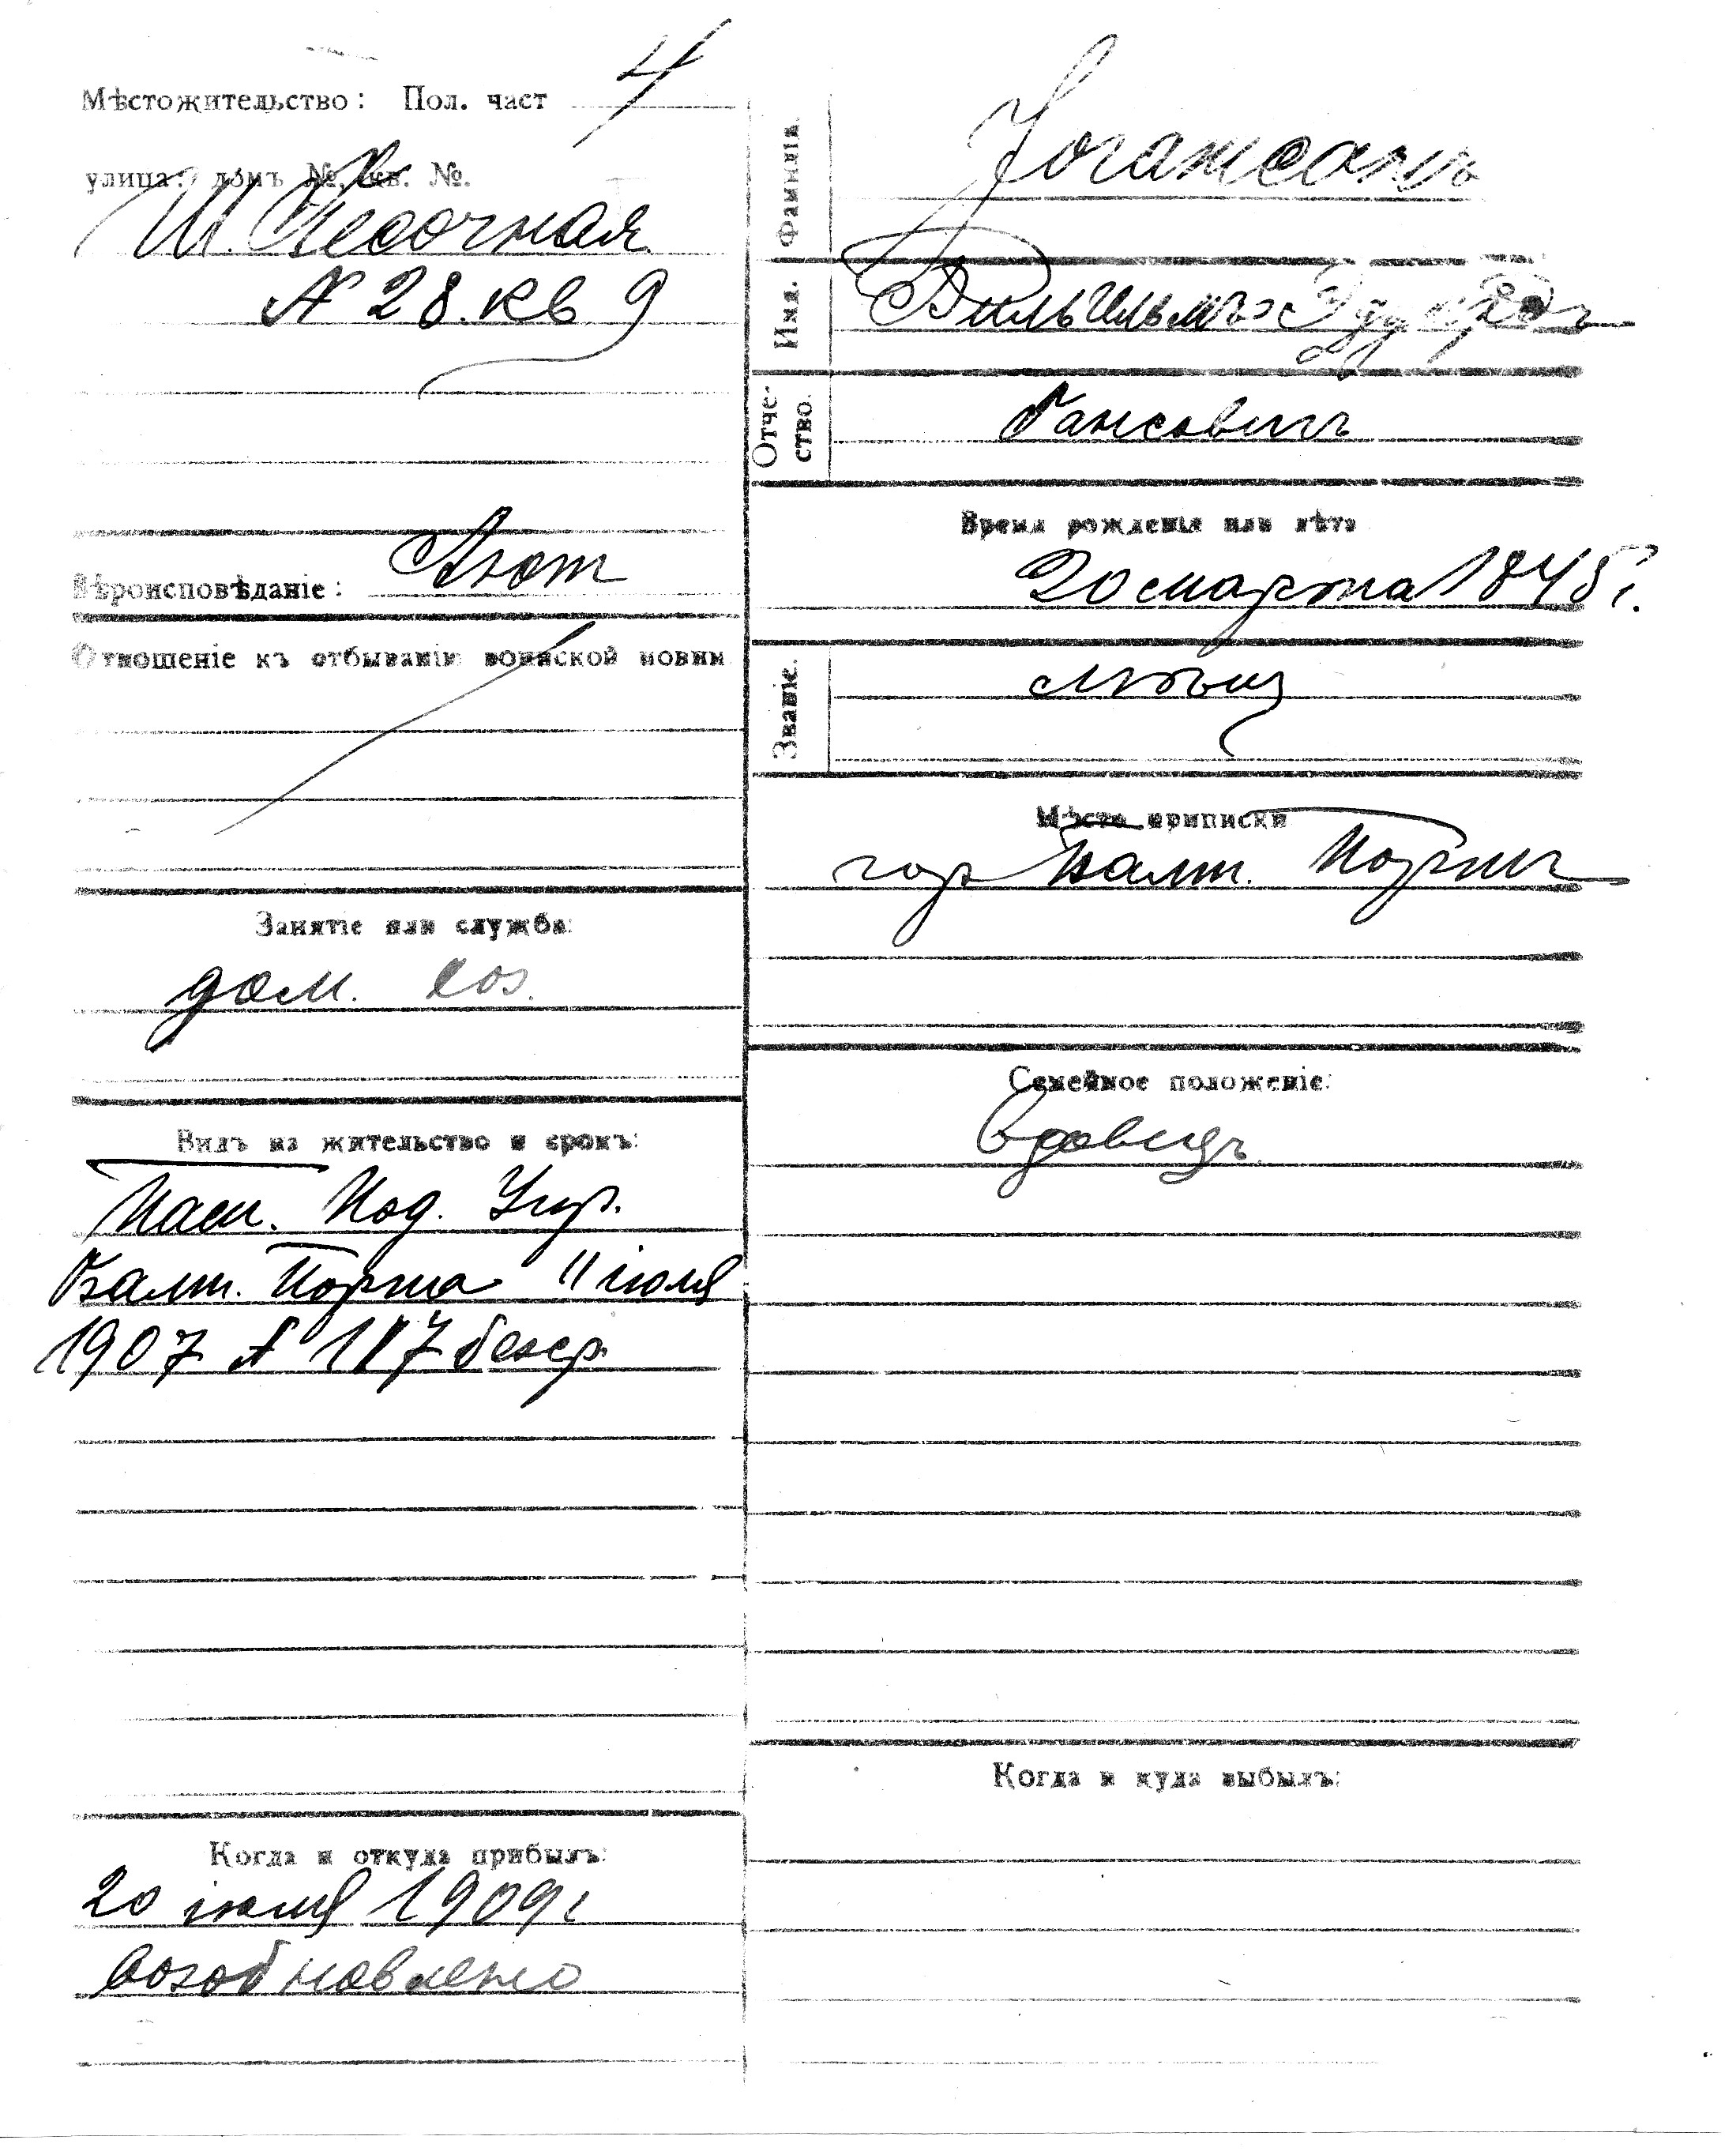 Мѣстожительство: Пол. част 4
улица: домъ № кв. №.
Ш. Песочная
№ 28. кв 9
Вѣроисповѣданіе: Лют
Отношеніе къ отбыванію воинской повин
Занятіе или служба:
дом. хоз.
Видъ на жительство и срокъ:
Пасп. Под. Упр.
Балт. Порта 11 іюля
1907 № 117 безср.
Когда и откуда прибылъ:
20 іюля 1909 г
возобновлено
Фамилія.
Іогансонъ
Имя.
Вильгельмъ Эдуардъ
Отче-
ство.
Гансовичъ
Время рожденія или лѣта
20 марта 1845 г.
Званіе.
мѣщ
Мѣсто приписки
гор Балт. Портъ
Семейное положеніе:
вдовецъ
Когда и куда выбылъ: